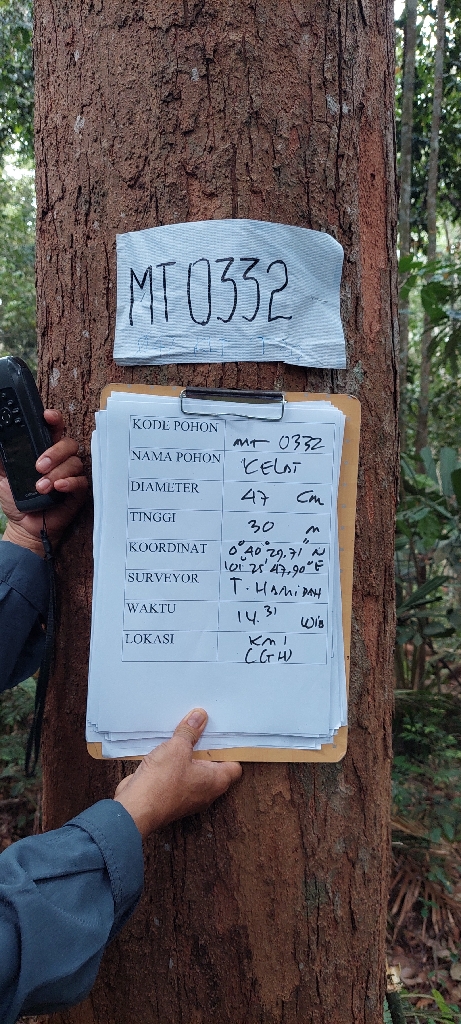 MT0332
KODE POHON MT 0332
NAMA POHON KELAT
DIAMETER 47 Cm
TINGGI 30 m
KOORDINAT 0° 40° 29,71" N
101° 25' 47,90" E
SURVEYOR T. HAMIDAH
WAKTU 14.31 WIB
LOKASI KM 1
(GH)